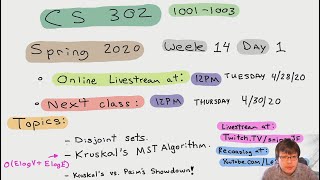 CS 302 1001-1003
Spring 2020 Week 14 Day 1
Online Livestream at: 12PM TUESDAY 4/28/20
Next class: 12PM THURSDAY 4/30/20
Topics:
- Disjoint sets.
- Kruskal's MST Algorithm.
O(ElogV + ElogE)
- Kruskal's vs. Prim's Showdown!
Livestream at:
Twitch.TV/
Recording at:
Youtube.com/